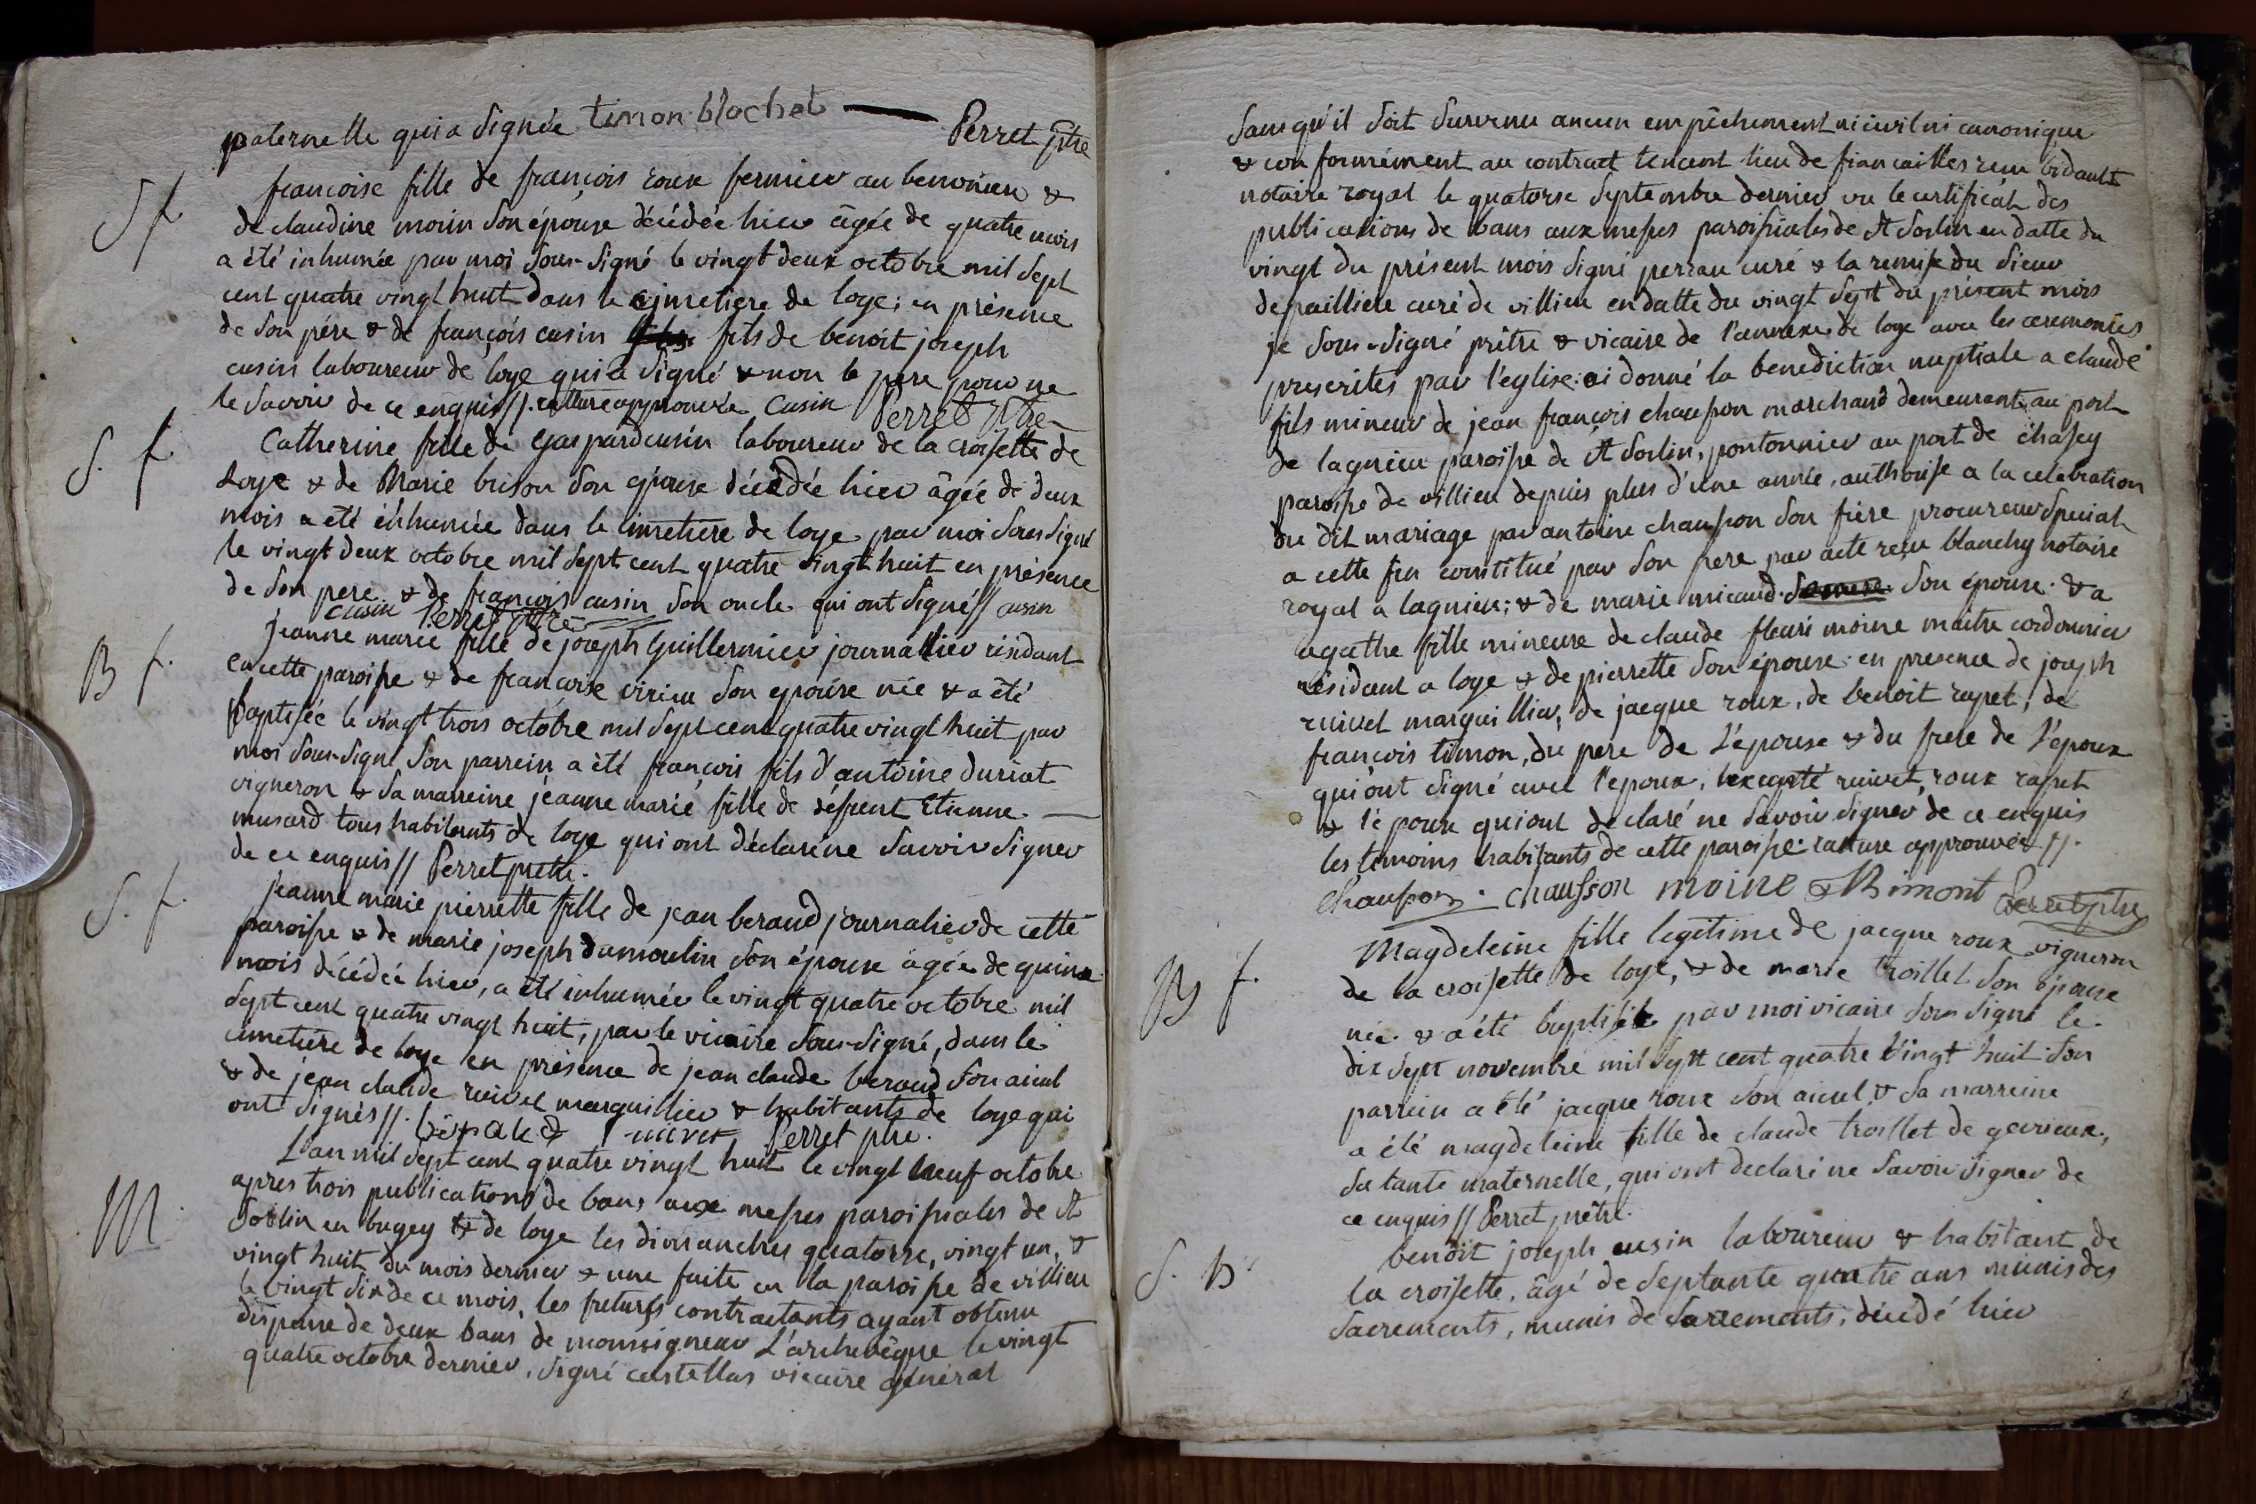 paternelle qui a signée timon blochet — Perret ptre
S f. francoise fille de françois roux fermier au benonieu &
de claudine morin son épouse décédée hier âgée de quatre mois
a été inhumée par moi sous-signé le vingt deux octobre mil sept
cent quatre vingt huit dans le cimetiere de loye; en présence
de son père & de françois cusin fils de benoit joseph
cusin laboureur de loye qui a signé & non le pere pour ne
le savoir de ce enquis //. rature approuvée cusin Perret ptre
S. f. Catherine fille de gaspard cusin laboureur de la croisette de
Loye & de Marie brison son épouse décédée hier âgée de deux
mois a été inhumée dans le cimetiere de loye par moi sous signé
le vingt deux octobre mil sept cent quatre vingt huit en présence
de son pere & de françois cusin son oncle qui ont signé // cusin
cusin Perret ptre
B f. jeanne marie fille de joseph Guillermier journallier résidant
en cette paroisse & de françoise virieu son epouse née & a été
baptisée le vingt trois octobre mil sept cent quatre vingt huit par
moi sous-signé son parrein a été françois fils d'antoine duriat
vigneron & sa marreine jeanne marie fille de défunt Etienne —
musard tous habitants de loye qui ont déclaré ne savoir signer
de ce enquis // Perret pretre.
S. f. jeanne marie pierrette fille de jean beraud journalier de cette
paroisse & de marie joseph dumoulin son épouse âgée de quinze
mois décédée hier, a été inhumée le vingt quatre octobre mil
sept cent quatre vingt huit, par le vicaire sous-signé, dans le
cimetiere de loye en présence de jean claude beraud son aieul
& de jean claude ruivet marguillier & habitants de loye qui
ont signés //. beraud ruivet Perret ptre.
M. L'an mil sept cent quatre vingt huit le vingt neuf octobre
apres trois publications de bans aux messes paroissiales de St
Sorlin en bugey & de loye les dimanches quatorze, vingt un, &
vingt huit du mois dernier & une faite en la paroisse de villieu
le vingt six de ce mois, les futurs contractants ayant obtenu
dispense de deux bans de monseigneur L'archevêque le vingt
quatre octobre dernier, signé castellas vicaire général
sans qu'il soit survenu aucun empêchement ni civil ni canonique
& conformément au contract tenant lieu de fiancailles reçu bidault
notaire royal le quatorse septembre dernier vu le certificat des
publications de bans aux messes paroissiales de St Sorlin en datte du
vingt du présent mois signé perrau curé & la remise du sieur
depaillieu curé de villieu en datte du vingt sept du présent mois
je sous-signé prêtre & vicaire de l'annexe de loye avec les ceremonies
prescrites par l'eglise ai donné la benediction nuptiale a claude
fils mineur de jean françois chausson marchand demeurant au port
de lagnieu paroisse de St Sorlin, pontonnier au port de chasey
paroisse de villieu depuis plus d'une année, authorisé a la celebration
du dit mariage par antoine chausson son frère procureur special
a cette fin constitué par son pere par acte reçu blanchy notaire
royal a lagnieu; & de marie micaud son épouse. & a
agathe fille mineure de claude fleuri moine maitre cordonnier
résidant a loye & de pierrette son épouse: en presence de joseph
ruivet marguillier, de jacque roux, de benoit rapet, de
françois timon, du pere de L'épouse & du frere de l'époux
qui ont signé avec l'epoux, excepté ruivet, roux rapet
& l'épouse qui ont déclaré ne savoir signer de ce enquis
les temoins habitants de cette paroisse. rature approuvée //.
chausson. chausson moine timont Perret ptre
B f. Magdeleine fille legitime de jacque roux vigneron
de la croisette de loye, & de marie troillet son épouse
née & a été baptisée par moi vicaire sous signé le
dix sept novembre mil sept cent quatre vingt huit. son
parrein a été jacque roux son aieul & sa marreine
a été magdeleine fille de claude troillet de gevrieux,
sa tante maternelle, qui ont declaré ne savoir signer de
ce enquis // Perret prêtre.
S. B. benoit joseph cusin laboureur & habitant de
la croisette, âgé de septante quatre ans munis des
sacrements, munis de sacrements; décédé hier